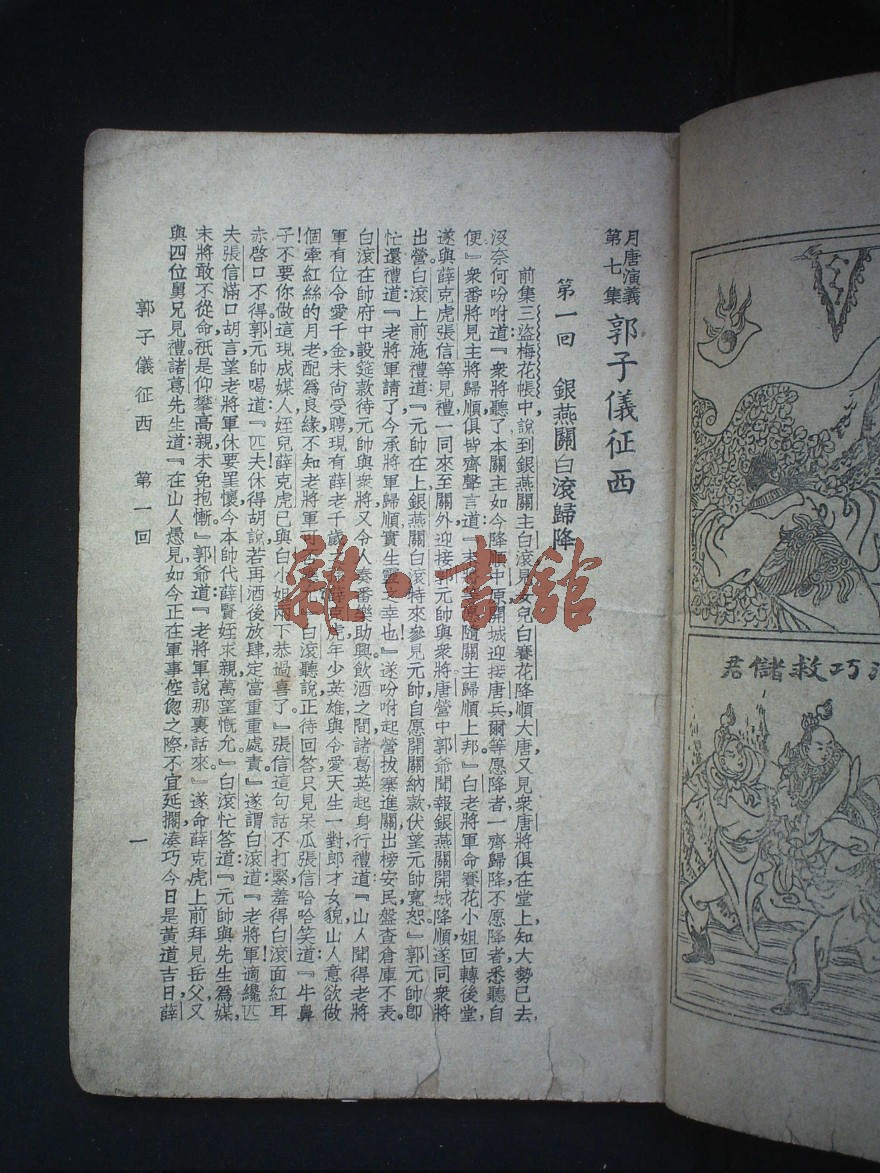 月唐演義
第七集
郭子儀征西
第一回 銀燕關白滾歸降
前集三盜梅花帳中，說到銀燕關主白滾見女兒白賽花降順大唐，又見衆唐將俱在堂上，知大勢已去，
沒奈何吩咐道：『衆將聽了本關主如今降順中原開城迎接唐兵爾等愿降者一齊歸降不愿降者悉聽自
便』衆番將見主將歸順俱皆齊聲言道：『末將等愿隨關主歸順上邦』白老將軍命賽花小姐回轉後堂，
遂與薛克虎張信等見禮一同來至關外迎接郭元帥與衆將唐營中郭爺聞報銀燕關開城降順遂同衆將
出營白滾上前施禮道：『元帥在上銀燕關白滾特來參見元帥自愿開關納款伏望元帥寬恕。』郭元帥卽
忙還禮道：『老將軍請了今承將軍歸順實生靈之幸也』遂吩咐起營拔寨進關出榜安民盤查倉庫不表。
白滾在帥府中設筵款待元帥與衆將又令人奏番樂助興飲酒之間諸葛英起身行禮道：『山人聞得老將
軍有位令愛千金未尚受聘現有薛老千歲 薛克虎年少英雄與令愛天生一對郎才女貌山人意欲做
個牽紅絲的月老配爲良緣不知老將軍可 白滾聽說正待回答只見呆瓜張信哈哈笑道：『牛鼻
子不要你做這現成媒人姪兒薛克虎已與白小姐兩下恭過喜了。』張信這句話不打緊羞得白滾面紅耳
赤啓口不得郭元帥喝道：『匹夫休得胡說若再酒後放肆定當重重處責』遂謂白滾道：『老將軍適纔匹
夫張信滿口胡言望老將軍休要罣懷今本帥代薛賢姪求親萬望慨允』白滾忙答道：『元帥與先生爲媒，
末將敢不從命祇是仰攀高親未免抱慚』郭爺道：『老將軍說那裏話來。』遂命薛克虎上前拜見岳父又
與四位舅兄見禮諸葛先生道：『在山人愚見如今正在軍事倥偬之際不宜延擱凑巧今日是黃道吉日薛
郭子儀征西 第一回 一
巧救儲君
雜·書館